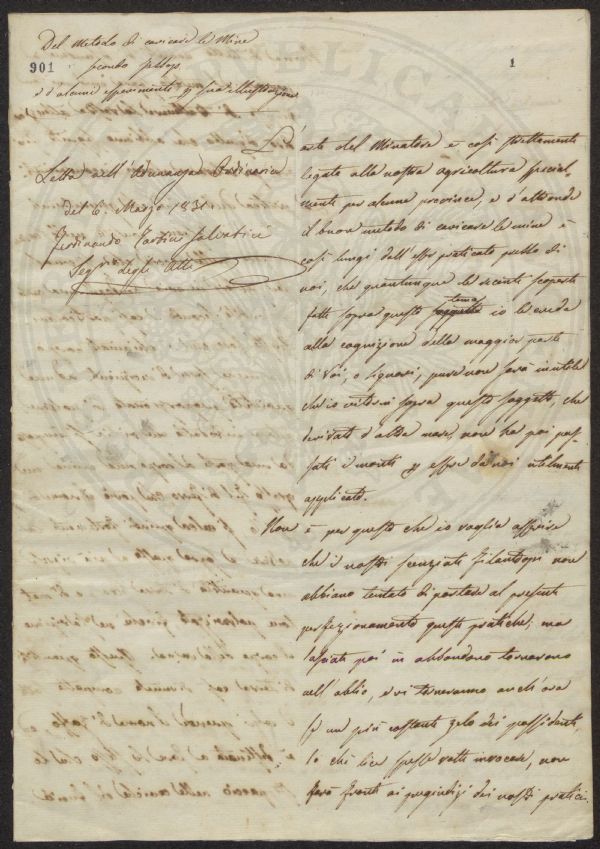 Del Metodo di caricare le Mine
901
1
secondo Jessop,
e d'alcuni esperimenti p sua illustrazione
Letta nell'Adunanza Ordinaria
del 6. Marzo 1831
Ferdinando Tartini Salvatici
Segr. degli Atti
L'arte del Minatore è così strettamente
legata alla nostra agricoltura special-
mente per alcune province, e d'altronde
il buon metodo di caricare le mine è
così lungi dall'esser praticato presso di
noi, che quantunque le recenti scoperte
fatte sopra questo tema io le creda
alla cognizione della maggior parte
di Voi, o Signori, pure non sarà inutile
che io intertenga sopra questo soggetto, che
derivato d'altra mano, non ha poi pas-
sati i monti p esser da noi utilmente
applicato.
Non è per questo che io voglia asserire
che i nostri scenziati filantropi non
abbiano tentato di portare al presente
perfezionamento queste pratiche; ma
lasciate poi in abbandono tornarono
nell'oblio, e vi torneranno anch'ora
se un più costante zelo dei possidenti,
lo che lice spesse volte invocare, non
farà fronte ai pregiudizi dei nostri pratici.